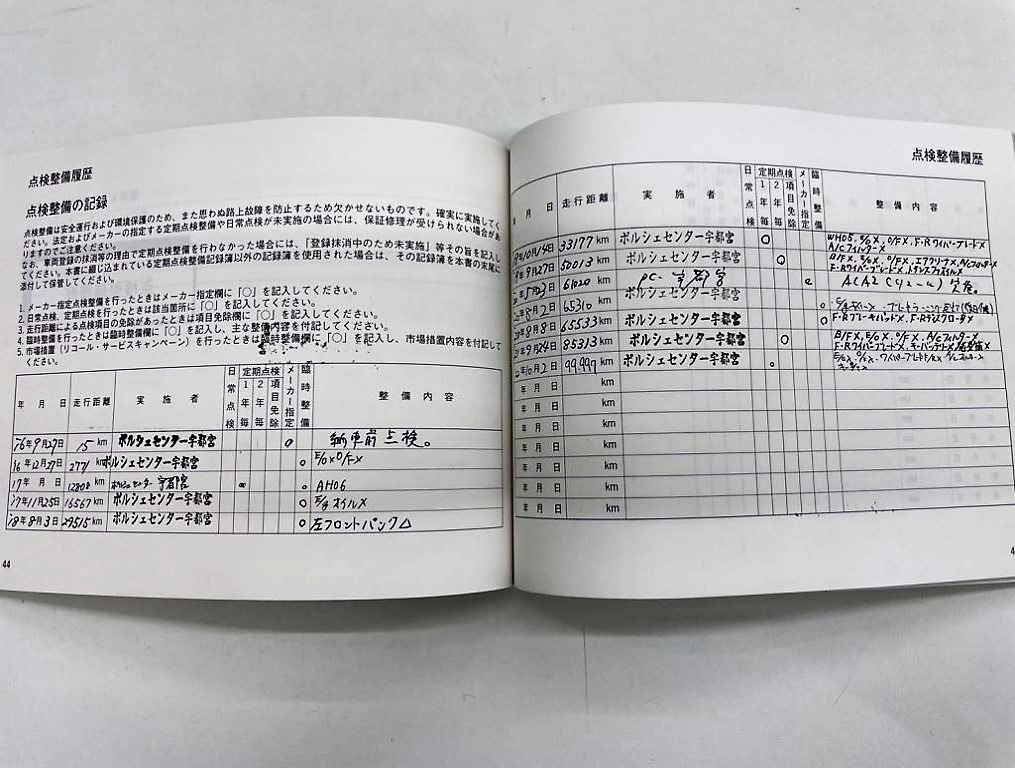 点検整備履歴
点検整備の記録
点検整備は安全運行および環境保護のため、また思わぬ路上故障を防止するため欠かせないものです。確実に実施してく
ださい。法定およびメーカーの指定する定期点検整備や日常点検が未実施の場合には、保証修理が受けられない場合があ
りますのでご注意ください。
なお、車両登録の抹消等の理由で定期点検整備を行わなかった場合には、「登録抹消中のため未実施」等その旨を記入し
てください。本書に綴じ込まれている定期点検整備記録簿以外の記録簿を使用された場合は、その記録簿を本書の末尾に
添付して保管してください。
1. メーカー指定点検整備を行ったときはメーカー指定欄に「○」を記入してください。
2. 日常点検、定期点検を行ったときは該当箇所に「○」を記入してください。
3. 走行距離による点検項目の免除があったときは項目免除欄に「○」を記入してください。
4. 臨時整備を行ったときは臨時整備欄に「○」を記入し、主な整備内容を付記してください。
5. 市場措置（リコール・サービスキャンペーン）を行ったときは臨時整備欄に「○」を記入し、市場措置内容を付記して
ください。
年 月 日 走行距離 実施者 日常点検 定期点検 1年毎 2年毎 項目免除 メーカー指定 臨時整備 整備内容
年9月27日 15 km ポルシェセンター宇都宮 ○ 納車前点検。
16年12月27日 2771 km ポルシェセンター宇都宮 ○ E/O X O/F X
17年 月 日 12808 km ポルシェセンター宇都宮 ○ AH06
17年11月25日 16567 km ポルシェセンター宇都宮 ○ E/gオイルX
18年8月3日 29515 km ポルシェセンター宇都宮 ○ 左フロントパンク△
44
点検整備履歴
年 月 日 走行距離 実施者 日常点検 定期点検 1年毎 2年毎 項目免除 メーカー指定 臨時整備 整備内容
年10月14日 33177 km ポルシェセンター宇都宮 ○ WH05, E/O X, O/F X, F・RワイパーブレードX
A/CフィルターX
年9月27日 50013 km ポルシェセンター宇都宮 ○ B/F X, E/O X, O/F X, エアクリーナーX, A/CフィルターX
F・RワイパーブレードX
61020 km PC-宇都宮 ACA2
年8月2日 65310 km ポルシェセンター宇都宮 ○
年8月8日 65533 km ポルシェセンター宇都宮 ○ F・RブレーキパッドX, F・RディスクローターX
年9月24日 85313 km ポルシェセンター宇都宮 ○ B/F X, E/O X, O/F X, A/CフィルターX
F・RワイパーブレードX
年10月2日 99,997 km ポルシェセンター宇都宮 ○ E/O X O/F X
年 月 日 km
年 月 日 km
年 月 日 km
年 月 日 km
年 月 日 km
年 月 日 km
年 月 日 km